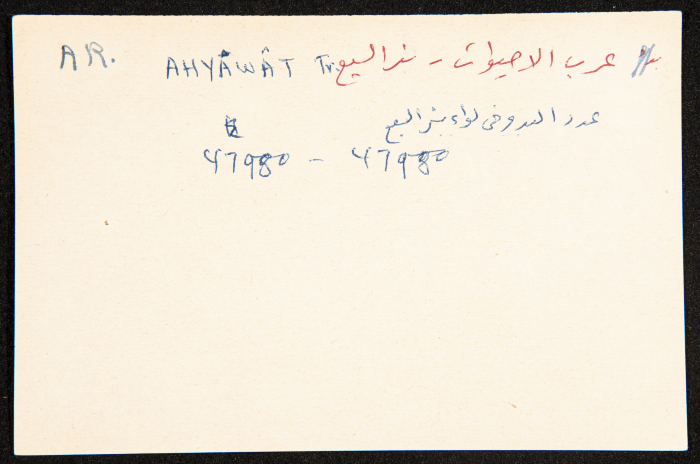 AR. AHYÂWÂT Tr. عرب الاحيوات - بئر السبع
عدد البدو في لواء بئر السبع
47980 - 47980